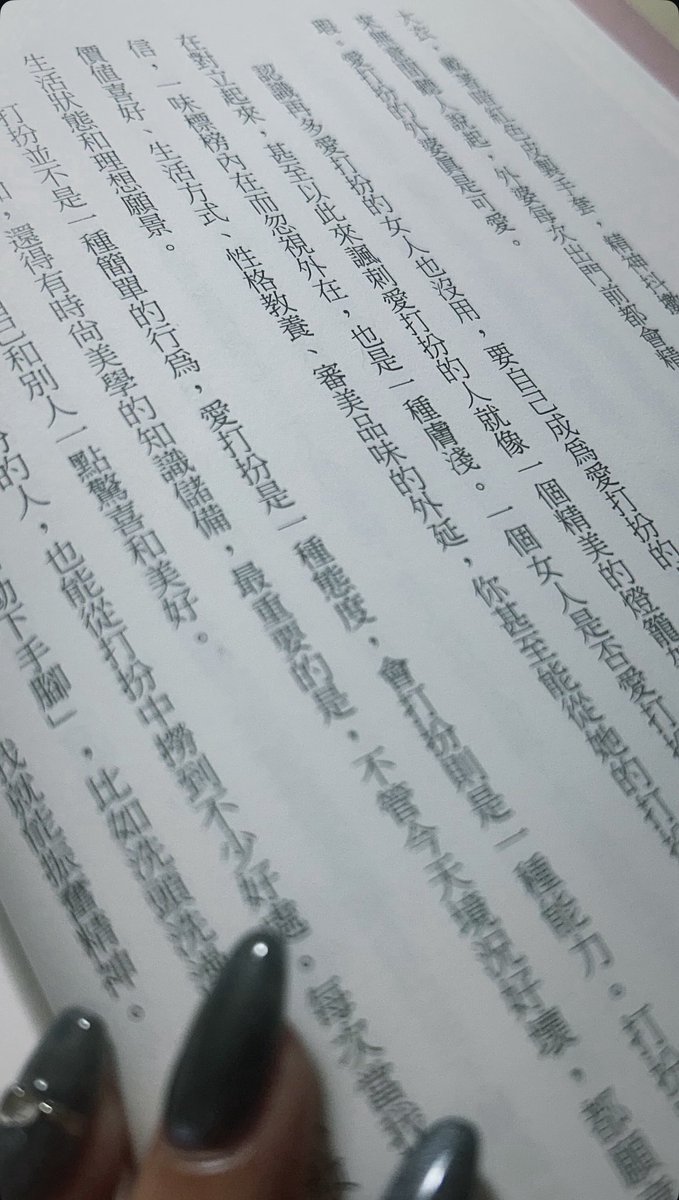 大衣，戴著暗紅色皮製手套，精神抖擻
聽人說起，外婆每次出門前都會精
暇。愛打扮的外婆真是可愛。
認識再多愛打扮的女人也沒用，要自己成爲愛打扮的
在對立起來，甚至以此來諷刺愛打扮的人就像一個精美的燈籠
信，一味標榜內在而忽視外在，也是一種膚淺。一個女人是否愛打扮
價值喜好、生活方式、性格教養、審美品味的外延，你甚至能從她的打扮
生活狀態和理想願景。
打扮並不是一種簡單的行爲，愛打扮是一種態度，會打扮則是一種能力。打扮
，還得有時尚美學的知識儲備，最重要的是，不管今天境況好壞，都願
自己和別人一點驚喜和美好。
的人，也能從打扮中撈到不少好處。每次當我
動下手腳」，比如洗頭洗澡
我就能振奮精神。